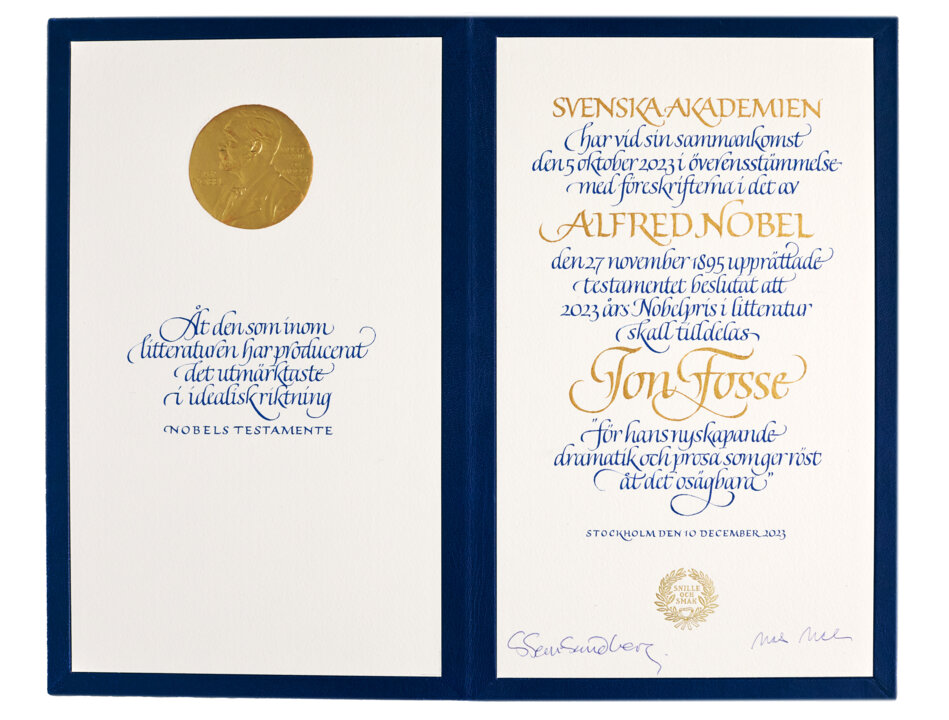 Åt den som inom
litteraturen har producerat
det utmärktaste
i idealisk riktning
NOBELS TESTAMENTE
SVENSKA AKADEMIEN
har vid sin sammankomst
den 5 oktober 2023 i överensstämmelse
med föreskrifterna i det av
ALFRED NOBEL
den 27 november 1895 upprättade
testamentet beslutat att
2023 års Nobelpris i litteratur
skall tilldelas
Jon Fosse
"för hans nyskapande
dramatik och prosa som ger röst
åt det osägbara"
STOCKHOLM DEN 10 DECEMBER 2023
SNILLE
OCH
SMAK